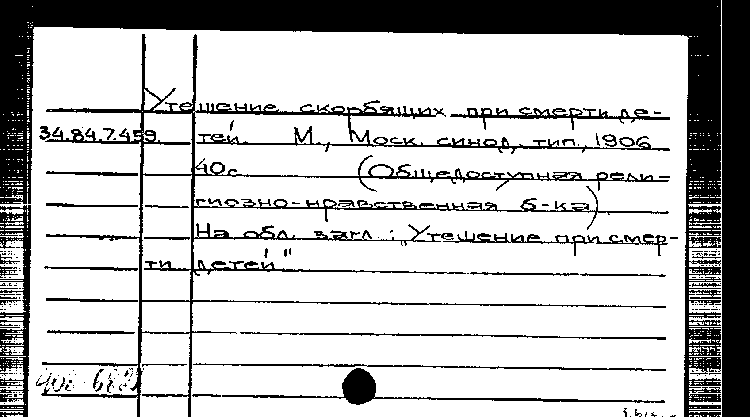 Утешение скорбящих при смерти де-
34.84.7.459. тей. М., Моск. синод. тип., 1906
40с (Общедоступная рели-
гиозно-нравственная б-ка)
На обл. загл.: „Утешение при смер-
ти детей"